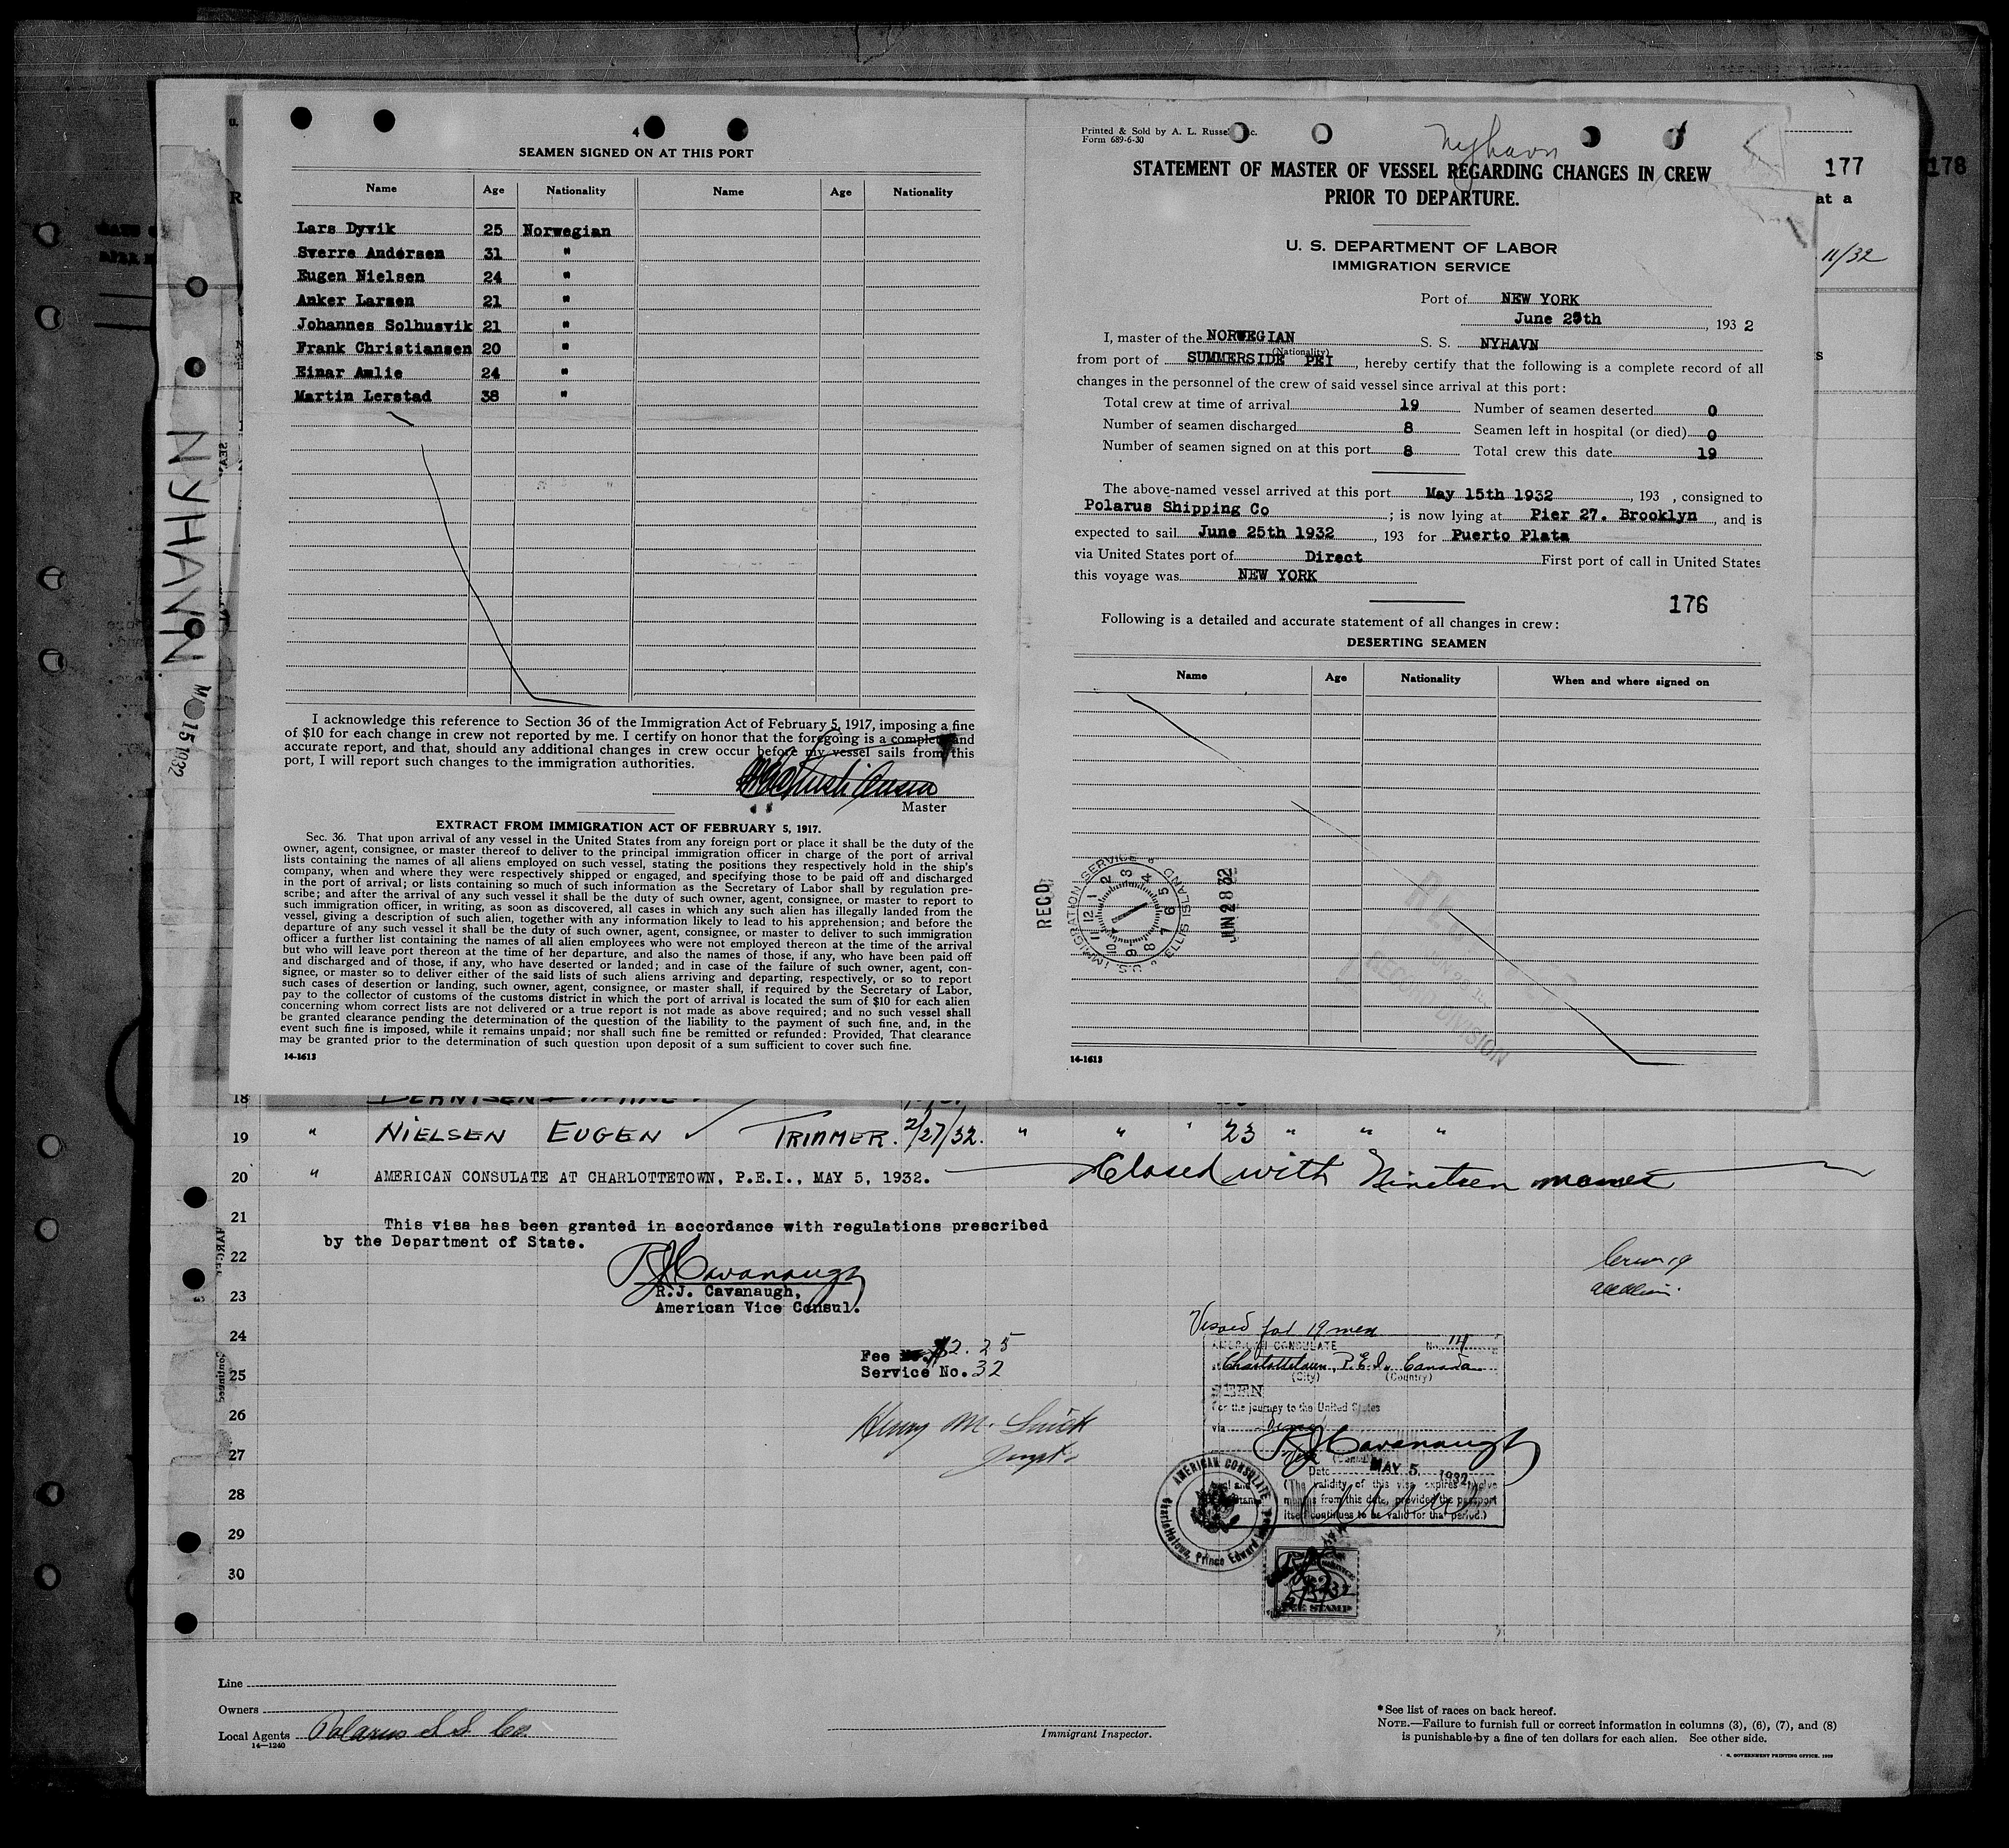 4
SEAMEN SIGNED ON AT THIS PORT
Name Age Nationality Name Age Nationality
Lars Dyvik 25 Norwegian
Sverre Andersen 31 "
Eugen Nielsen 24 "
Anker Larsen 21 "
Johannes Solhusvik 21 "
Frank Christiansen 20 "
Einar Amlie 24 "
Martin Lerstad 38 "
I acknowledge this reference to Section 36 of the Immigration Act of February 5, 1917, imposing a fine
of $10 for each change in crew not reported by me. I certify on honor that the foregoing is a complete and
accurate report, and that, should any additional changes in crew occur before my vessel sails from this
port, I will report such changes to the immigration authorities.
Master
EXTRACT FROM IMMIGRATION ACT OF FEBRUARY 5, 1917.
Sec. 36. That upon arrival of any vessel in the United States from any foreign port or place it shall be the duty of the
owner, agent, consignee, or master thereof to deliver to the principal immigration officer in charge of the port of arrival
lists containing the names of all aliens employed on such vessel, stating the positions they respectively hold in the ship's
company, when and where they were respectively shipped or engaged, and specifying those to be paid off and discharged
in the port of arrival; or lists containing so much of such information as the Secretary of Labor shall by regulation pre-
scribe; and after the arrival of any such vessel it shall be the duty of such owner, agent, consignee, or master to report to
such immigration officer, in writing, as soon as discovered, all cases in which any such alien has illegally landed from the
vessel, giving a description of such alien, together with any information likely to lead to his apprehension; and before the
departure of any such vessel it shall be the duty of such owner, agent, consignee, or master to deliver to such immigration
officer a further list containing the names of all alien employees who were not employed thereon at the time of the arrival
but who will leave port thereon at the time of her departure, and also the names of those, if any, who have been paid off
and discharged and of those, if any, who have deserted or landed; and in case of the failure of such owner, agent, con-
signee, or master so to deliver either of the said lists of such aliens arriving and departing, respectively, or so to report
such cases of desertion or landing, such owner, agent, consignee, or master shall, if required by the Secretary of Labor,
pay to the collector of customs of the customs district in which the port of arrival is located the sum of $10 for each alien
concerning whom correct lists are not delivered or a true report is not made as above required; and no such vessel shall
be granted clearance pending the determination of the question of the liability to the payment of such fine, and, in the
event such fine is imposed, while it remains unpaid; nor shall such fine be remitted or refunded: Provided, That clearance
may be granted prior to the determination of such question upon deposit of a sum sufficient to cover such fine.
14-1613
Printed & Sold by A. L. Russel c.
Form 689-6-30
Nyhavn
STATEMENT OF MASTER OF VESSEL REGARDING CHANGES IN CREW
PRIOR TO DEPARTURE.
U. S. DEPARTMENT OF LABOR
IMMIGRATION SERVICE
Port of NEW YORK
June 25th, 193 2
I, master of the NORWEGIAN S. S. NYHAVN
(Nationality)
from port of SUMMERSIDE PEI, hereby certify that the following is a complete record of all
changes in the personnel of the crew of said vessel since arrival at this port:
Total crew at time of arrival 19 Number of seamen deserted 0
Number of seamen discharged 8 Seamen left in hospital (or died) 0
Number of seamen signed on at this port 8 Total crew this date 19
The above-named vessel arrived at this port May 15th 1932, 193 , consigned to
Polarus Shipping Co; is now lying at Pier 27. Brooklyn, and is
expected to sail June 25th 1932, 193 for Puerto Plata
via United States port of Direct First port of call in United States
this voyage was NEW YORK
176
Following is a detailed and accurate statement of all changes in crew:
DESERTING SEAMEN
Name Age Nationality When and where signed on
REC'D
U. S. IMMIGRATION SERVICE ELLIS ISLAND
12 1 2 3 4 5 6 7 8 9 10 11
JUN 28 32
RECORD DIVISION
14-1613
177
178
at a
11/32
NYHAVN
15 1932
18
19 " NIELSEN EUGEN ✓ TRIMMER. 2/27/32. " " " 23 " " "
20 " AMERICAN CONSULATE AT CHARLOTTETOWN, P.E.I., MAY 5, 1932. Closed with Nineteen names
21
This visa has been granted in accordance with regulations prescribed
by the Department of State.
22
RJ Cavanaugh
23
R.J. Cavanaugh,
American Vice Consul.
24
Fee $2.25
Service No. 32
25
26
27
28
29
30
Henry M.
Crew 19
Vised for 19 men
AMERICAN CONSULATE No. 14
Charlottetown, P.E.I. Canada
(City) (Country)
SEEN
For the journey to the United States
via
RJ Cavanaugh
Date MAY 5 1932
(The validity of this visa expires twelve
months from this date, provided the passport
itself continues to be valid for that period.)
AMERICAN CONSULATE Charlottetown, Prince Edward
FEE STAMP
Line
Owners
Local Agents Polarus S S Co.
14-1240
Immigrant Inspector.
* See list of races on back hereof.
NOTE.—Failure to furnish full or correct information in columns (3), (6), (7), and (8)
is punishable by a fine of ten dollars for each alien. See other side.
GOVERNMENT PRINTING OFFICE